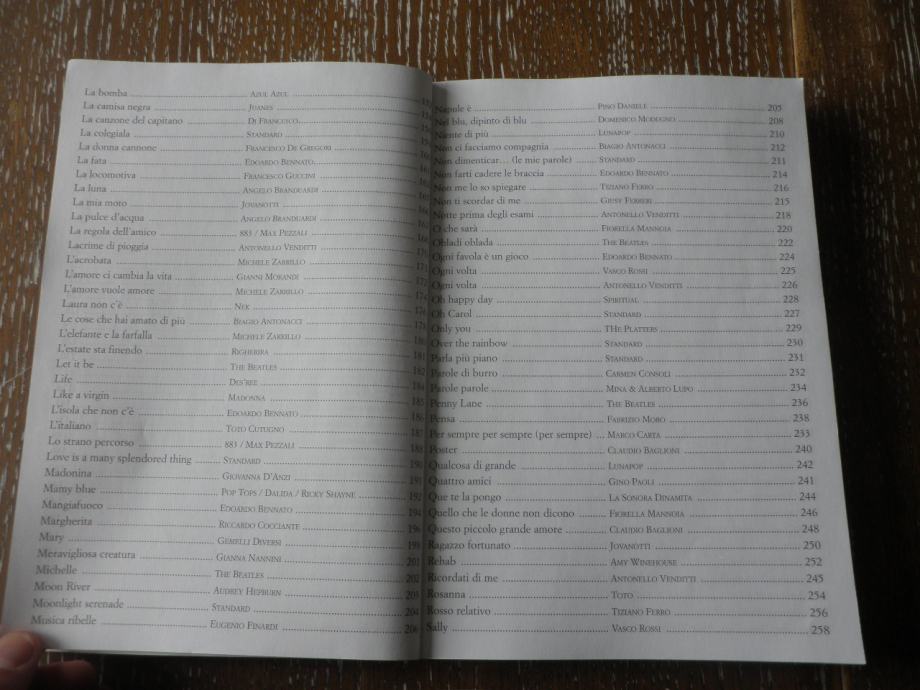 La bomba ........ Azul Azul ........ 152
La camisa negra ........ Juanes ........ 154
La canzone del capitano ........ Di Francesco ........
La colegiala ........ Standard ........
La donna cannone ........ Francesco De Gregori ........ 160
La fata ........ Edoardo Bennato ........ 161
La locomotiva ........ Francesco Guccini ........
La luna ........ Angelo Branduardi ........
La mia moto ........ Jovanotti ........
La pulce d'acqua ........ Angelo Branduardi ........
La regola dell'amico ........ 883 / Max Pezzali ........
Lacrime di pioggia ........ Antonello Venditti ........ 170
L'acrobata ........ Michele Zarrillo ........ 171
L'amore ci cambia la vita ........ Gianni Morandi ........
L'amore vuole amore ........ Michele Zarrillo ........ 174
Laura non c'è ........ Nek ........ 176
Le cose che hai amato di più ........ Biagio Antonacci ........ 178
L'elefante e la farfalla ........ Michele Zarrillo ........ 180
L'estate sta finendo ........ Righerira ........ 181
Let it be ........ The Beatles ........ 182
Life ........ Des'ree ........ 184
Like a virgin ........ Madonna ........ 185
L'isola che non c'è ........ Edoardo Bennato ........ 186
L'italiano ........ Toto Cutugno ........ 187
Lo strano percorso ........ 883 / Max Pezzali ........ 188
Love is a many splendored thing ........ Standard ........ 190
Madonina ........ Giovanna D'Anzi ........ 191
Mamy blue ........ Pop Tops / Dalida / Ricky Shayne ........ 192
Mangiafuoco ........ Edoardo Bennato ........ 194
Margherita ........ Riccardo Cocciante ........ 196
Mary ........ Gemelli Diversi ........ 198
Meravigliosa creatura ........ Gianna Nannini ........ 201
Michelle ........ The Beatles ........ 202
Moon River ........ Audrey Hepburn ........ 203
Moonlight serenade ........ Standard ........ 204
Musica ribelle ........ Eugenio Finardi ........ 206
Napule è ........ Pino Daniele ........ 205
Nel blu, dipinto di blu ........ Domenico Modugno ........ 208
Niente di più ........ Lunapop ........ 210
Non ci facciamo compagnia ........ Biagio Antonacci ........ 212
Non dimenticar... (le mie parole) ........ Standard ........ 211
Non farti cadere le braccia ........ Edoardo Bennato ........ 214
Non me lo so spiegare ........ Tiziano Ferro ........ 216
Non ti scordar di me ........ Giusy Ferreri ........ 215
Notte prima degli esami ........ Antonello Venditti ........ 218
O che sarà ........ Fiorella Mannoia ........ 220
Obladì obladà ........ The Beatles ........ 222
Ogni favola è un gioco ........ Edoardo Bennato ........ 224
Ogni volta ........ Vasco Rossi ........ 225
Ogni volta ........ Antonello Venditti ........ 226
Oh happy day ........ Spiritual ........ 228
Oh Carol ........ Standard ........ 227
Only you ........ THe Platters ........ 229
Over the rainbow ........ Standard ........ 230
Parla più piano ........ Standard ........ 231
Parole di burro ........ Carmen Consoli ........ 232
Parole parole ........ Mina & Alberto Lupo ........ 234
Penny Lane ........ The Beatles ........ 236
Pensa ........ Fabrizio Moro ........ 238
Per sempre per sempre (per sempre) ... Marco Carta ........ 233
Poster ........ Claudio Baglioni ........ 240
Qualcosa di grande ........ Lunapop ........ 242
Quattro amici ........ Gino Paoli ........ 241
Que te la pongo ........ La Sonora Dinamita ........ 244
Quello che le donne non dicono ........ Fiorella Mannoia ........ 246
Questo piccolo grande amore ........ Claudio Baglioni ........ 248
Ragazzo fortunato ........ Jovanotti ........ 250
Rehab ........ Amy Winehouse ........ 252
Ricordati di me ........ Antonello Venditti ........ 245
Rosanna ........ Toto ........ 254
Rosso relativo ........ Tiziano Ferro ........ 256
Sally ........ Vasco Rossi ........ 258